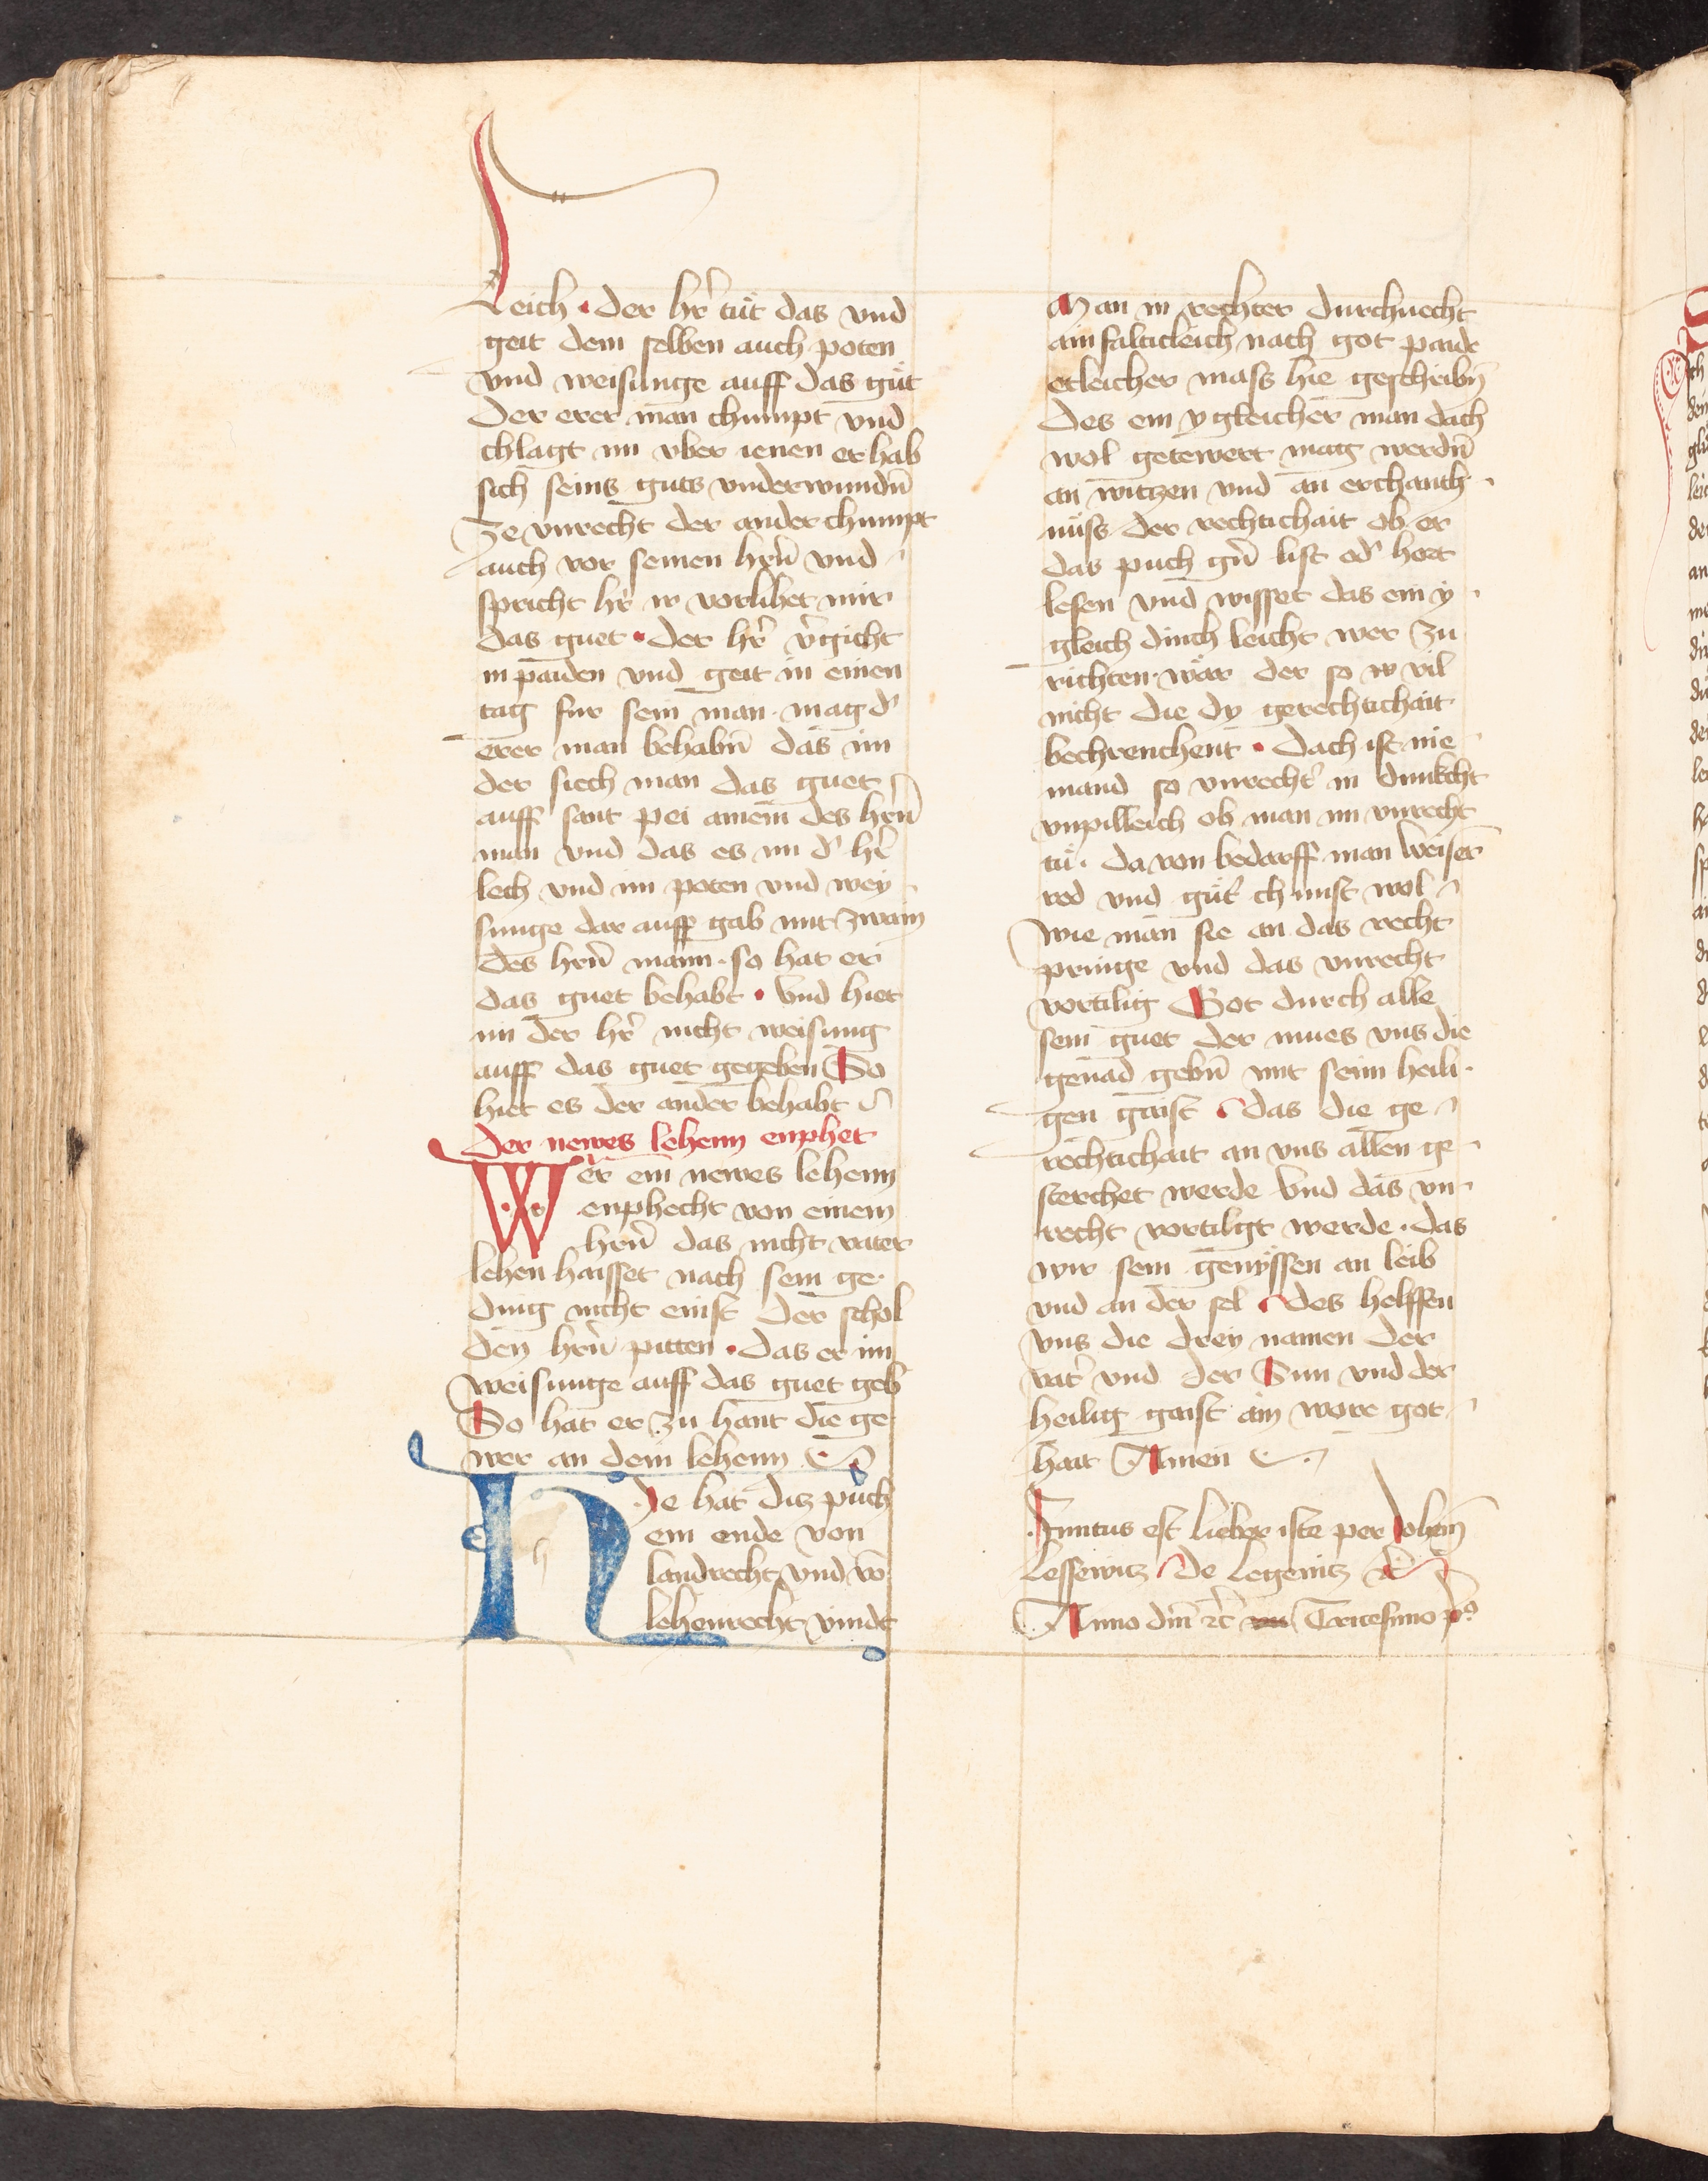 Leich · der hr̄ tuͤt das vnd
geit dem selben auch poten
vnd weisunge auff das guͤt
Der erer man chumpt vnd
chlagt im vber ienen er hab
sich seins guts vnderwundn̄
Ze vnrecht der ander chumpt
auch vor seinen hern̄ vnd
spricht hr̄ ir vorlihet mir
das guet · der hr̄ v̄gicht
in paiden vnd geit in einen
tag fur sein man · mag d'
erer man behabn̄ das im
der siech man das guet
auff sant pei ainem des hern̄
man vnd das es im d' hr̄
lech vnd im poten vnd wey
sunge dar auff gab mit zwain
des hern̄ mann · so hat er
das guet behabt · vnd hiet
im der hr̄ nicht weisung
auff das guet gegeben So
hiet es der ander behabt
Der newes lehenn enphet
Wer ein newes lehenn
enphecht von einem
hern̄ das nicht vater
lehen haisset nach sein ge·
ding nicht enist der schol
den hern̄ pitten · das er im
weisunge auff das guet geb
So hat er zu hant die ge
wer an dem lehenn
Hie hat ditz puͦch
ein ende von
landrecht vnd vō
lehenrecht vindt
Man in rechter durchnecht
ainfalticleich nach got paide
etleicher mass hie geschribn̄
des ein ygleicher man dach
wol getewert mag werdn̄
an witzen vnd an erchanth·
nuͤss der rechtichait ob er
das puch gern̄ list od' hort
lesen vnd wisset das ein y·
gleich dinch leicht wer zu
richten · waͤr der so ir vil
nicht die dy gerechtichait
bechrenchent · dach ist nie
mand so vnrecht' in dunkcht
vnpilleich ob man im vnrecht
tuͤ · da von bedarff man weiser
red vnd guͤt' chunst wol
wie man sie an das recht
pringe vnd das vnrecht
vortilig Got durch alle
sein guet der mues vns die
genad gebn̄ mit seim heili·
gen gaist das die ge
rechtichait an vns allen ge
sterchet werde vnd das vn·
recht vortilgt werde · das
wir sein genyssen an leib
vnd an der sel des helffen
vns die drey namen der
vat' vnd der Sun vnd der
heilig gaist ain wore got
hait Amen
Finitus est lieber iste per Johem̄
Lessewitz De Legenitz
Anno dm̄ Tricesimo pº